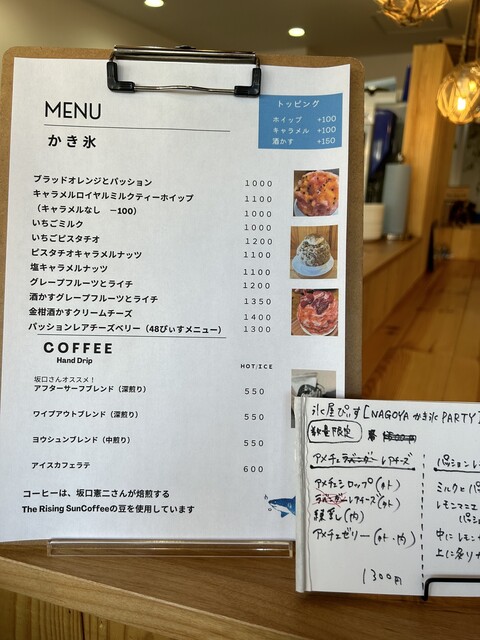 MENU
かき氷
トッピング
ホイップ +100
キャラメル +100
酒かす +150
ブラッドオレンジとパッション 1000
キャラメルロイヤルミルクティーホイップ 1100
（キャラメルなし －100） 1000
いちごミルク 1000
いちごピスタチオ 1200
ピスタチオキャラメルナッツ 1100
塩キャラメルナッツ 1100
グレープフルーツとライチ 1200
酒かすグレープフルーツとライチ 1350
金柑酒かすクリームチーズ 1400
パッションレアチーズベリー（48ぴぃすメニュー） 1300
COFFEE
Hand Drip
HOT/ICE
坂口さんオススメ！
アフターサーフブレンド（深煎り） 550
ワイプアウトブレンド（深煎り） 550
ヨウシュンブレンド（中煎り） 550
アイスカフェラテ 600
コーヒーは、坂口憲二さんが焙煎する
The Rising SunCoffeeの豆を使用しています
氷屋ぴぃす[NAGOYAかき氷PARTY]
数量限定
アメチェラベンダーレアチーズ
アメチェシロップ(外)
ラベンダーレアチーズ(外)
(内)
アメチェゼリー(外・内)
1300円
パッションレ
ミルクとパ
レモンマニエ
パッシ
中にレモン
上に添り